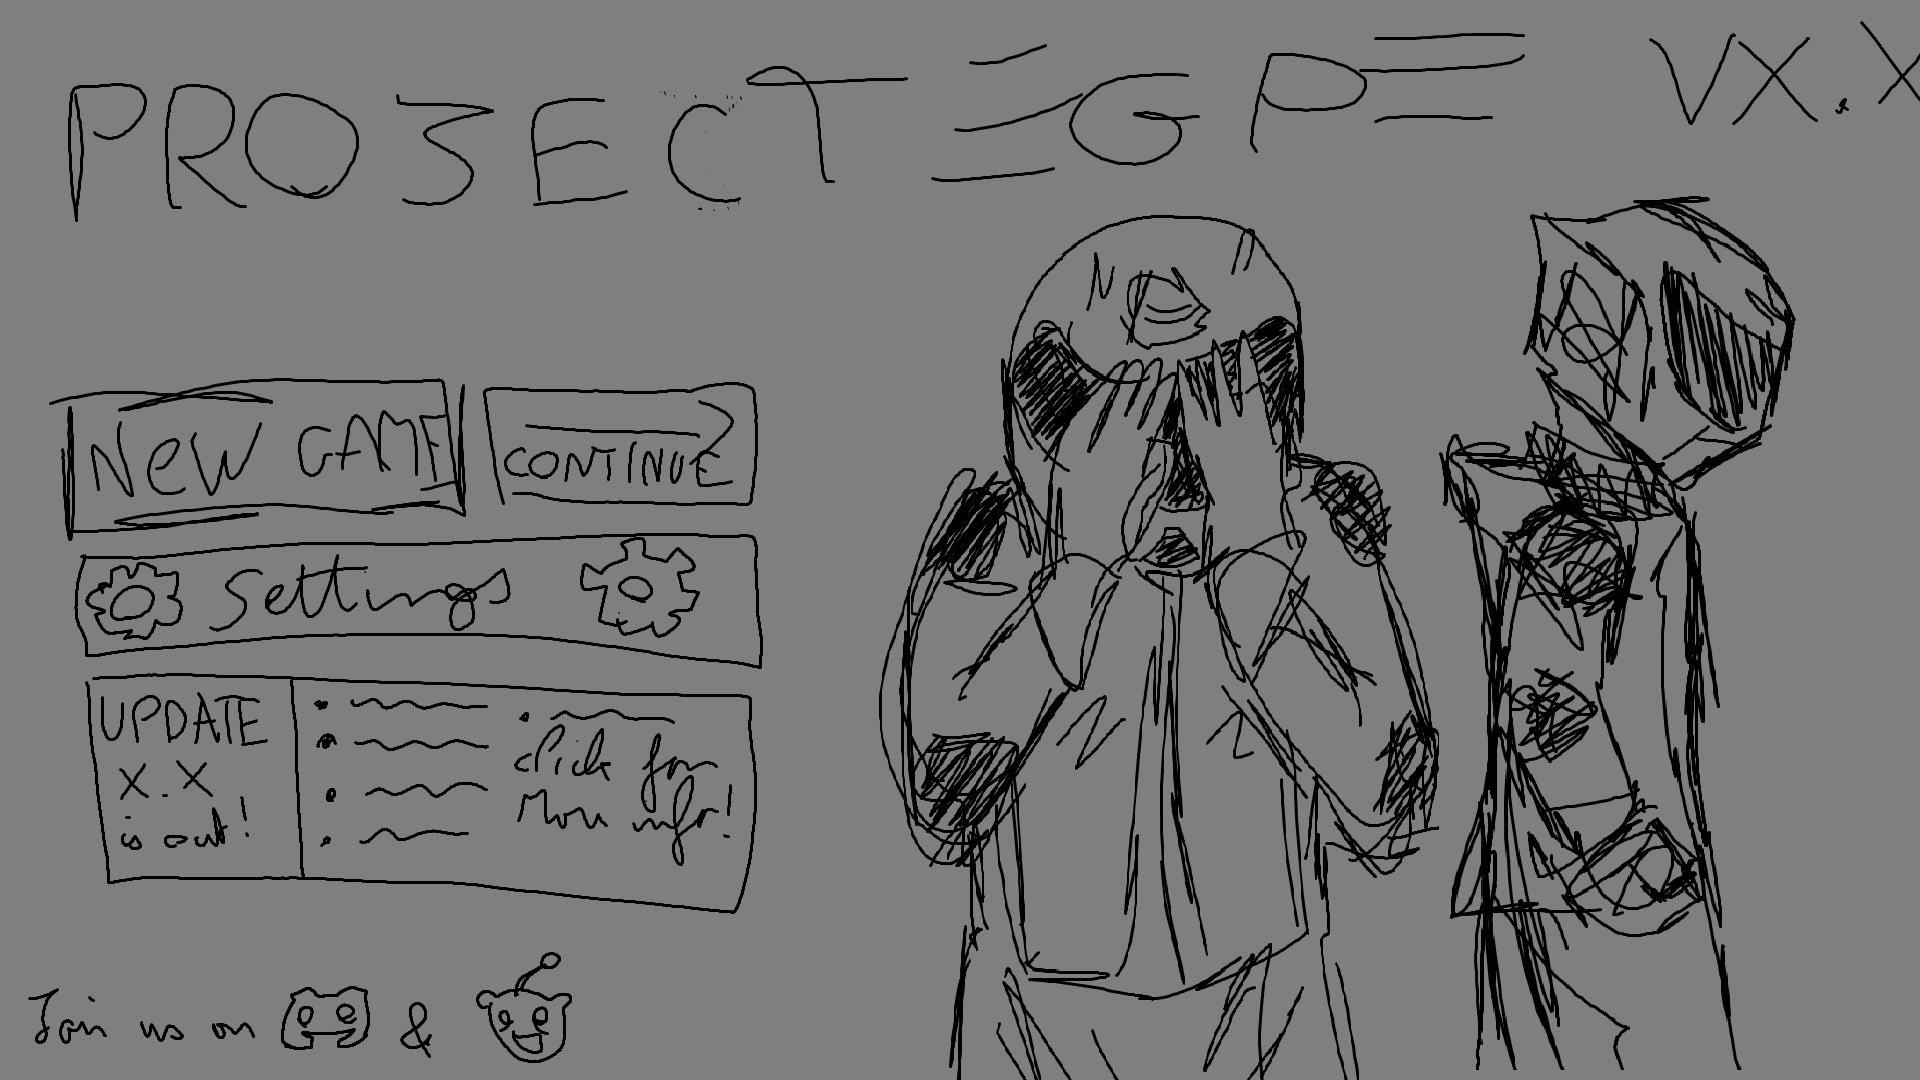 PROJECT GP VX.X
NEW GAME
CONTINUE
Settings
UPDATE
X.X
is out!
click for
More info!
Join us on &